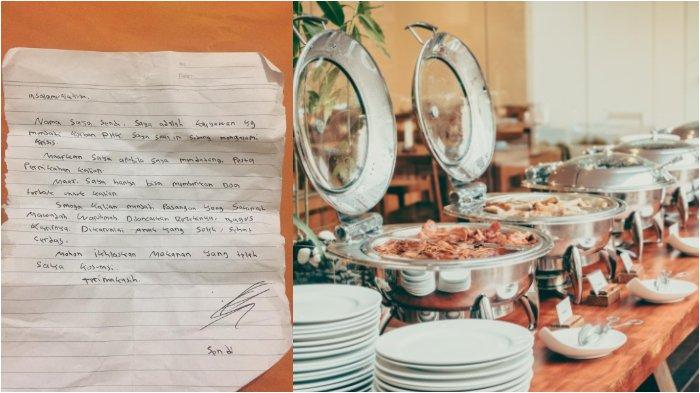 No:
Date:
Assalamualaikum.
Nama saya Sendi. Saya adalah karyawan yg
menjadi korban PHK. Saya saat ini sedang mengalami
krisis.
Maafkan saya apabila saya mendatangi Pesta
Pernikahan kalian.
Maaf. Saya hanya bisa memberikan Doa
terbaik untuk kalian
Semoga kalian menjadi Pasangan yang Sakinah
Mawaddah Warahmah. Dilancarkan Rezekinya, bagus
karirnya. Dikaruniai anak yang Soleh, Sehat
Cerdas.
Mohon ikhlaskan Makanan yang telah
saya konsumsi.
Terimakasih.
Sendi